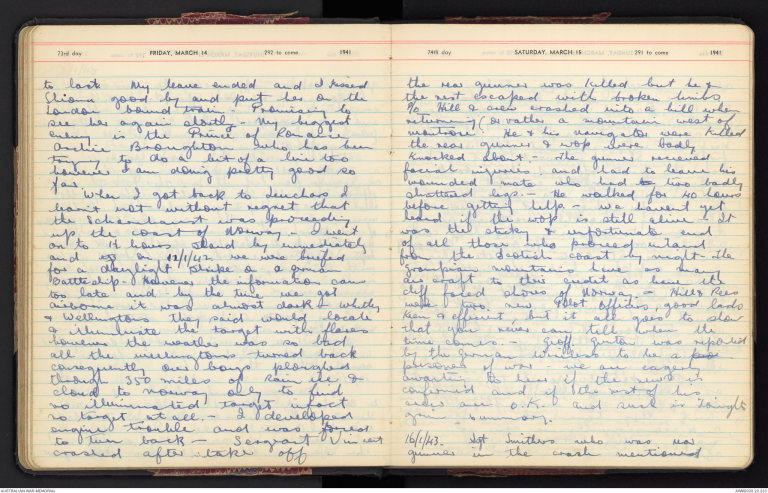 73rd day FRIDAY, MARCH 14 292 to come 1941
to last. My leave ended and I kissed
good by and put her on the
London bound train. Promising to
see her again shortly - My biggest
enemy is the Prince of
Archie Broughton who has been
trying to do a bit of a line too
however I am doing pretty good so
far.
When I got back to Leuchars I
learnt not without regret that
the Scharnhorst was proceeding
up the coast of Norway - I went
on to 1½ hours stand by immediately
and on 12/1/43 we were briefed
for a daylight strike on a german
Battleship. However the information came
too late and by the time we got
airborne it was almost dark -
& Wellingtons they said would locate
& illuminate the target with flares
however the weather was so bad
all the wellingtons turned back
consequently our boys ploughed
through 350 miles of rain ice &
cloud to norway only to find
no illuminated target infact
no target at all. - I developed
engine trouble and was forced
to turn back - Sergeant Vincent
crashed after take off
74th day SATURDAY, MARCH 15 291 to come 1941
the rear gunner was killed but he &
the rest escaped with broken limbs
P/O Hill & crew crashed into a hill when
returning (or rather a mountain west of
montrose. He & his navigator were killed
the rear gunner & wop were badly
knocked about - The gunner received
facial injuries and had to leave his
wounded mate who had two badly
shattered legs. - He walked for 40 hours
before getting help - we haven't yet
heard if the wop is still alive - It
was the sticky & unfortunate end
of all those who proceed inland
from the Scotish coast by night - the
Grampian mountains have as many
aircraft to their credit as have the
cliff faced shores of Norway - Hill & Rees
were two new Pilot officers, good lads
keen & efficient but it all goes to show
that you never can tell when the
time comes. - Geoff was reported
by the German wireless to be a
prisoner of war we are eagerly
awaiting to hear if the news is
confirmed and if the rest of his
crew are O.K. and such is tonights
grim summary.
16/1/43. Sgt Smithers who was rear
gunner in the crash mentioned
AUSTRALIAN WAR MEMORIAL